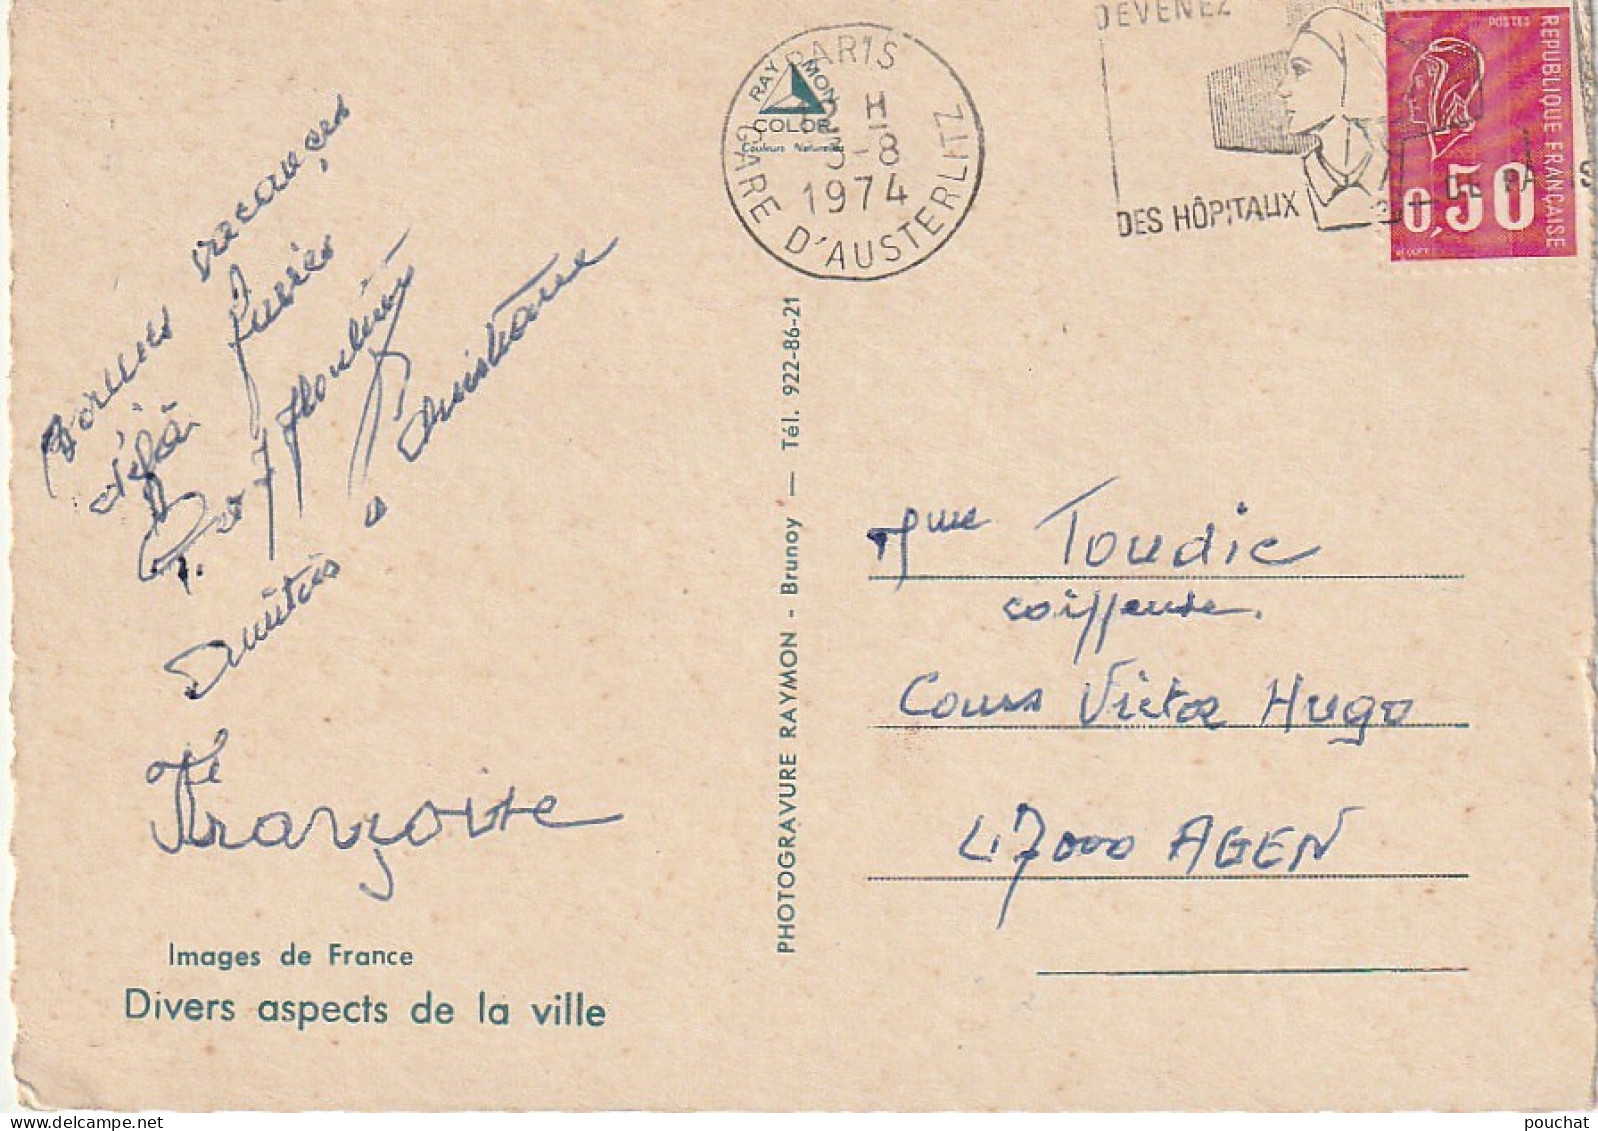 PARIS
H
3-8
1974
GARE D'AUSTERLITZ
RAYMON
COLOR
Couleurs Naturelles
DEVENEZ
DES HÔPITAUX
DE PARIS
POSTES
REPUBLIQUE FRANÇAISE
0,50
Bonnes vacances
déjà finies
Amitiés
à
Christiane
Françoise
Images de France
Divers aspects de la ville
PHOTOGRAVURE RAYMON - Brunoy — Tél. 922-86-21
Mme Toudic
coiffeuse.
Cours Victor Hugo
47000 AGEN
pouchat